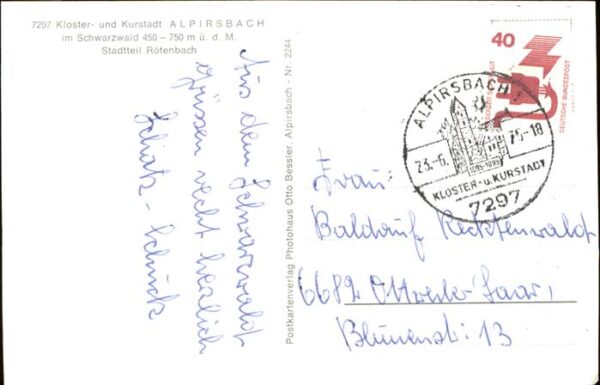 7297 Kloster- und Kurstadt ALPIRSBACH
im Schwarzwald 450 – 750 m ü. d. M.
Stadtteil Rötenbach
Aus dem Schwarzwald
grüssen recht herzlich
Schatz - Schück
Postkartenverlag Photohaus Otto Bessler, Alpirsbach - Nr. 2244
40
DEUTSCHE BUNDESPOST
ALPIRSBACH
23.-6. 75-18
KLOSTER- u. KURSTADT
7297
Frau
Baldauf Recktenwald
6682 Ottweiler-Saar,
Blumenstr. 13